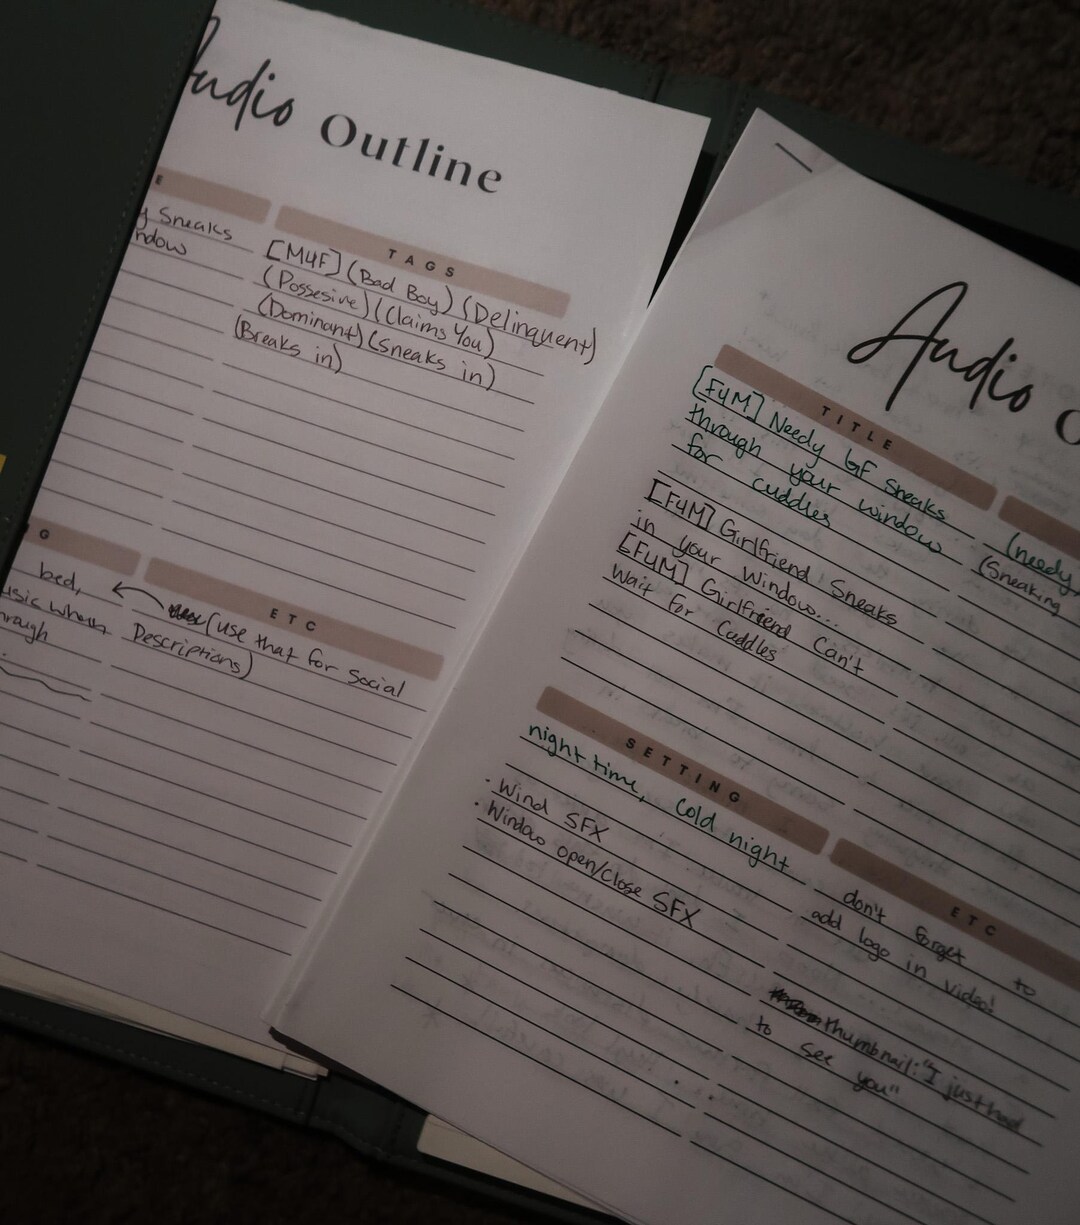 Audio Outline
TAGS
Sneaks
[M4F] (Bad Boy) (Delinquent)
(Possesive) (Claims You)
(Dominant) (Sneaks in)
(Breaks in)
G
bed,
ETC
(use that for social
Descriptions)
Audio
TITLE
[F4M] Needy GF sneaks
through your window
for cuddles
[F4M] Girlfriend Sneaks
in your window...
[F4M] Girlfriend Can't
Wait for Cuddles
(needy,
(Sneaking
SETTING
night time, cold night
· Wind SFX
· Window open/close SFX
ETC
don't forget to
add logo in video!
thumbnail: "I just had
to see you"